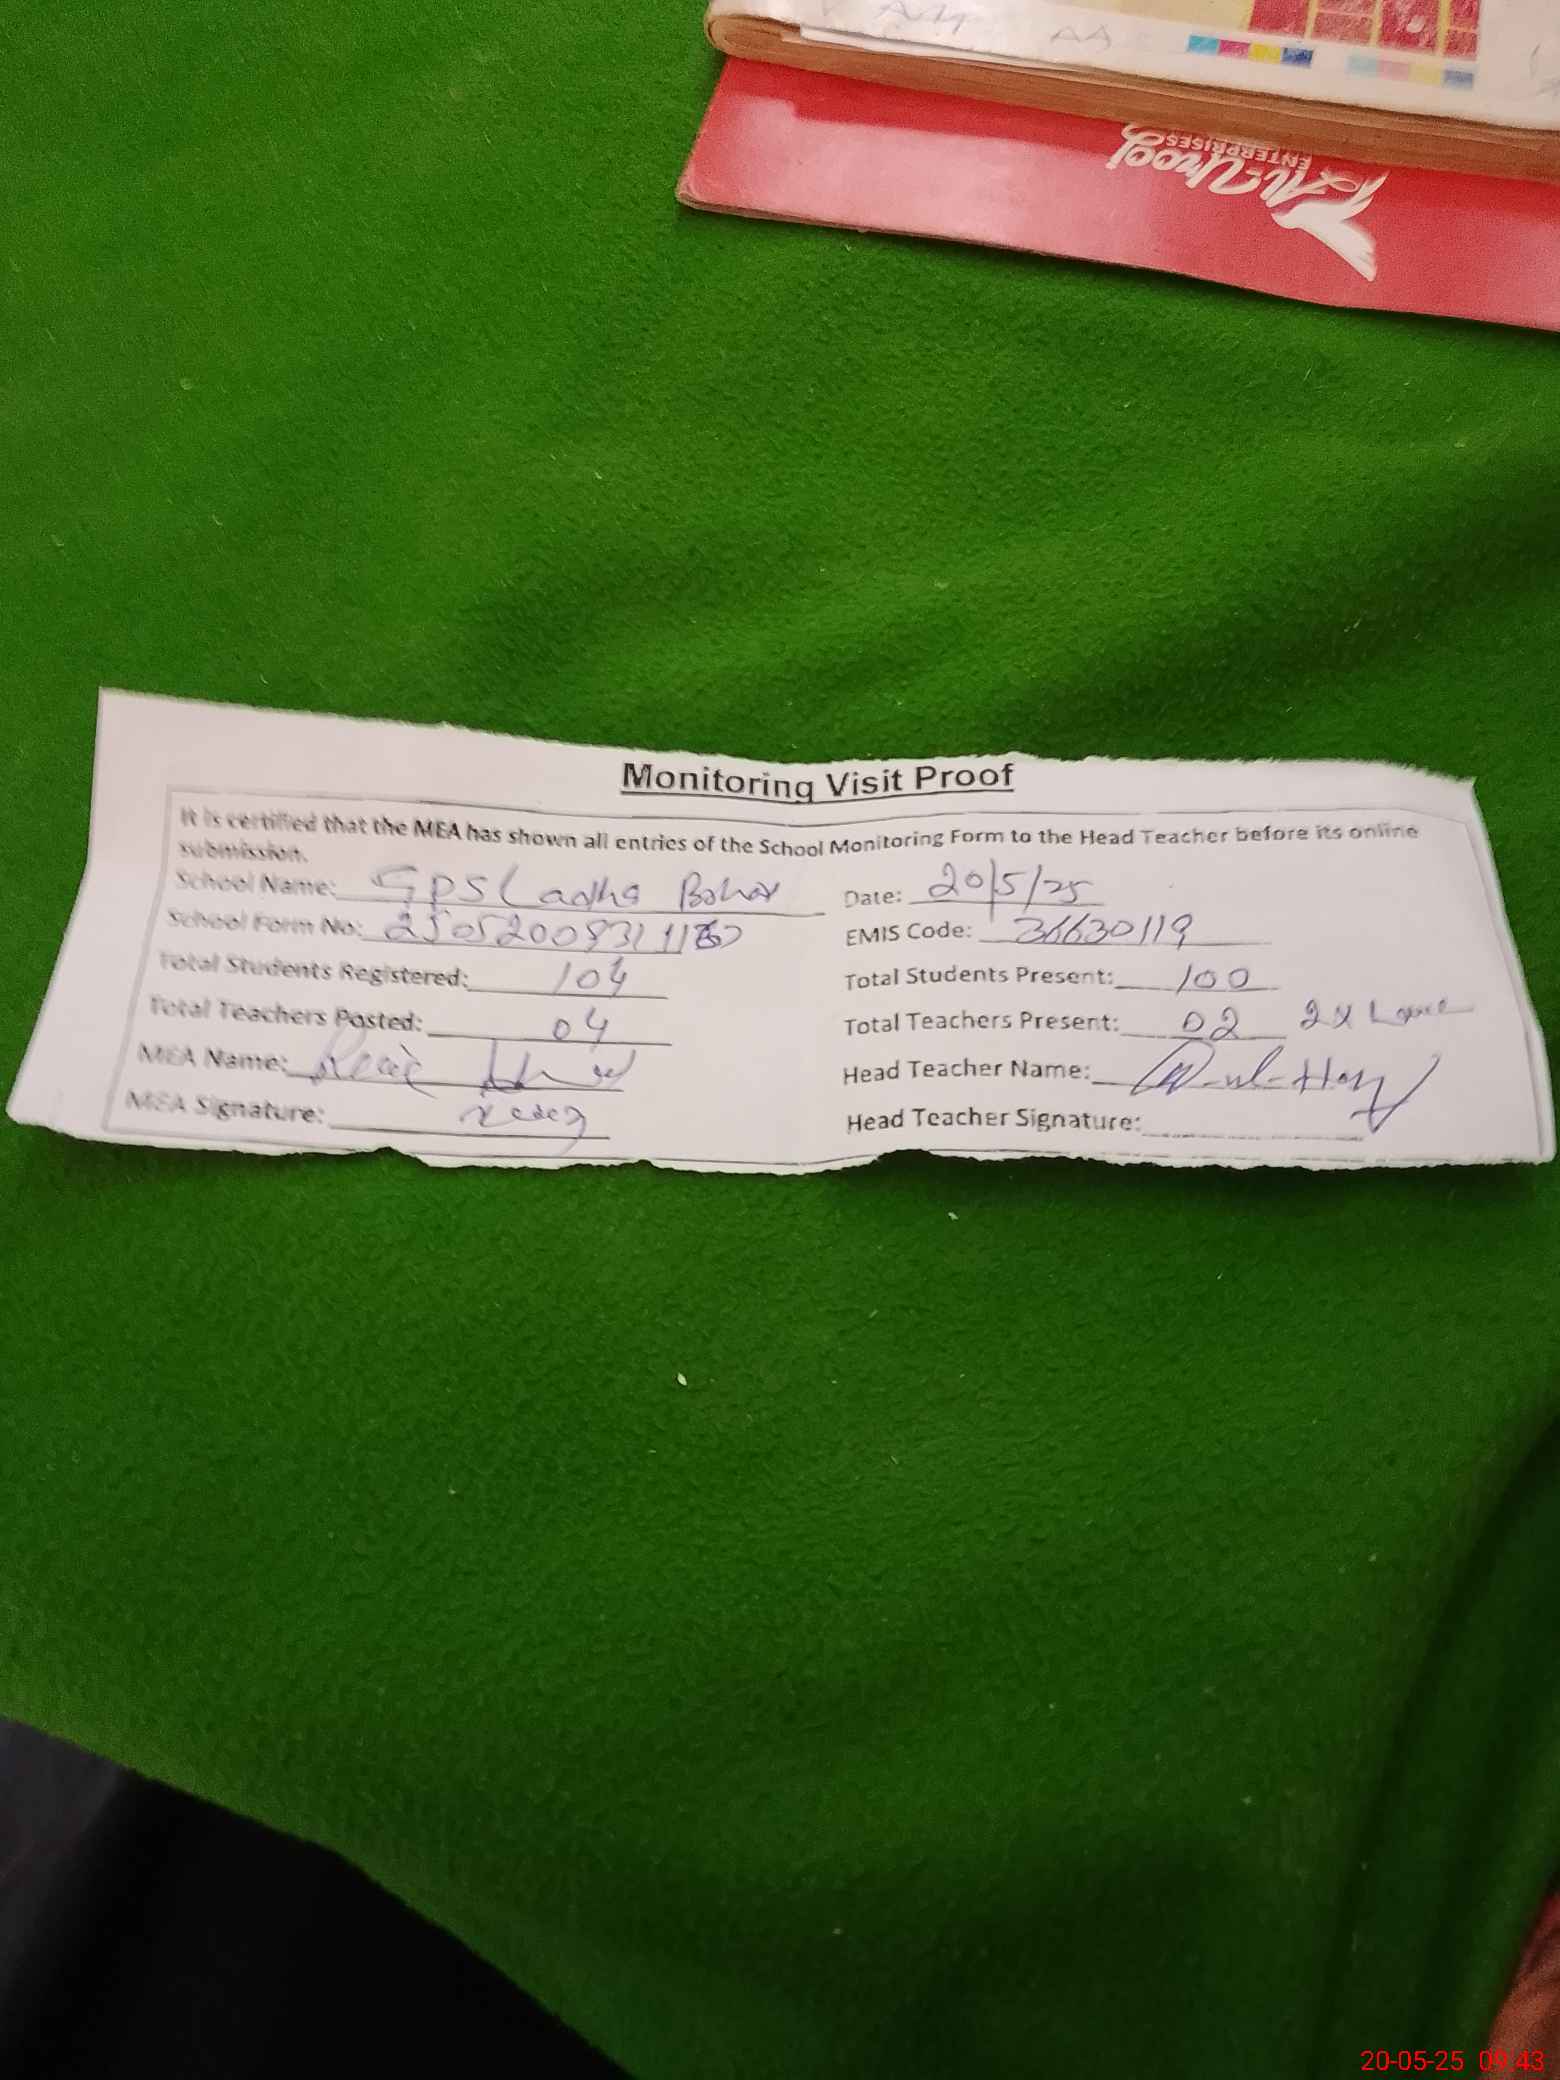 AA
Al-Urooj
ENTERPRISES
Monitoring Visit Proof
It is certified that the MEA has shown all entries of the School Monitoring Form to the Head Teacher before its online
submission.
School Name: GPS Ladha Bohar Date: 20/5/25
School Form No: EMIS Code: 36630119
Total Students Registered: 104 Total Students Present: 100
Total Teachers Posted: 04 Total Teachers Present: 02 2x Leave
MEA Name: Head Teacher Name:
MEA Signature: Head Teacher Signature:
20-05-25 09:43